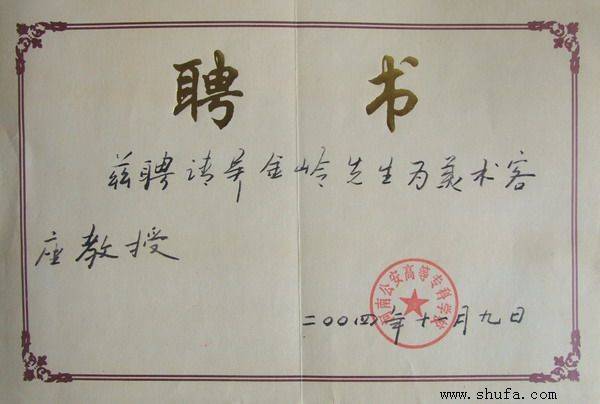 聘书
兹聘请吴金岭先生为美术客
座教授
河南公安高等专科学校
二〇〇四年十一月九日
www.shufa.com